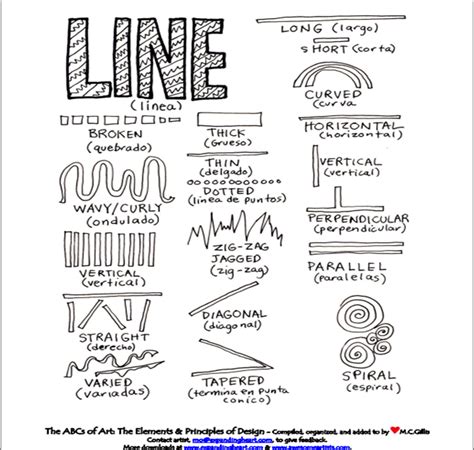 LINE
(línea)
LONG (largo)
SHORT (corta)
CURVED
(curva
BROKEN
(quebrado)
THICK
(Grueso)
HORIZONTAL
(horizontal)
THIN
(delgado)
DOTTED
(línea de puntos)
VERTICAL
(vertical)
WAVY/CURLY
(ondulado)
PERPENDICULAR
(perpendicular)
ZIG-ZAG
JAGGED
(zig-zag)
VERTICAL
(vertical)
PARALLEL
(paralelas)
STRAIGHT
(derecho)
DIAGONAL
(diagonal)
SPIRAL
(espiral)
VARIED
(variadas)
TAPERED
(termina en punta
conico)
The ABCs of Art: The Elements & Principles of Design – Compiled, organized, and added to by ❤M.C.Gillis
Contact artist, mc@expandingheart.com, to give feedback.
More downloads at www.expandingheart.com & www.awesomeartists.com